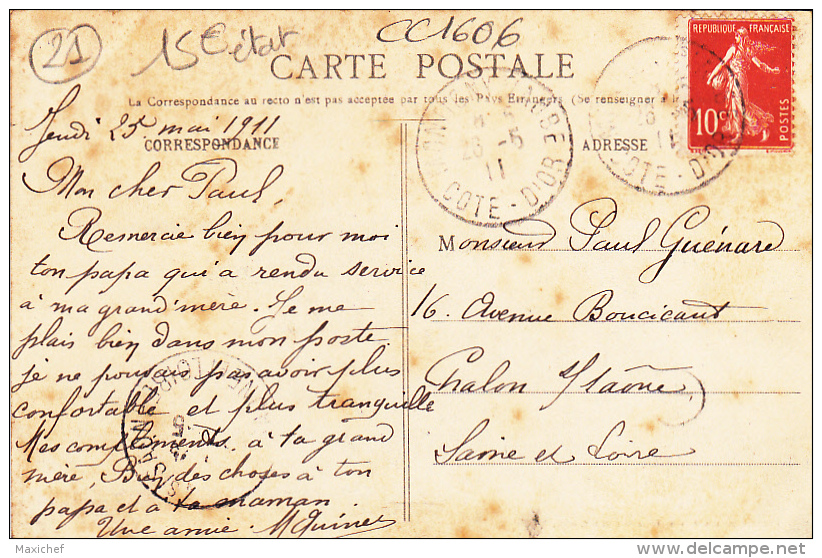 21
15 € état
CC1606
CARTE POSTALE
La Correspondance au recto n'est pas acceptée par tous les Pays Étrangers (Se renseigner à la
Jeudi 25 mai 1911
CORRESPONDANCE
ADRESSE
RÉPUBLIQUE FRANÇAISE
10c
POSTES
26 -5
11
COTE-D'OR
COTE-D'OR
Mon cher Paul,
Remercie bien pour moi
ton papa qui a rendu service
à ma grand'mère. Je me
plais bien dans mon poste
je ne pouvais pas avoir plus
confortable et plus tranquille
Mes compliments à ta grand
mère, Bien des choses à ton
papa et à ta maman.
Une amie.
Monsieur Paul Guénard
16. Avenue Boucicaut
Chalon s/Saône
Saône et Loire
Maxichef
delcampe.net